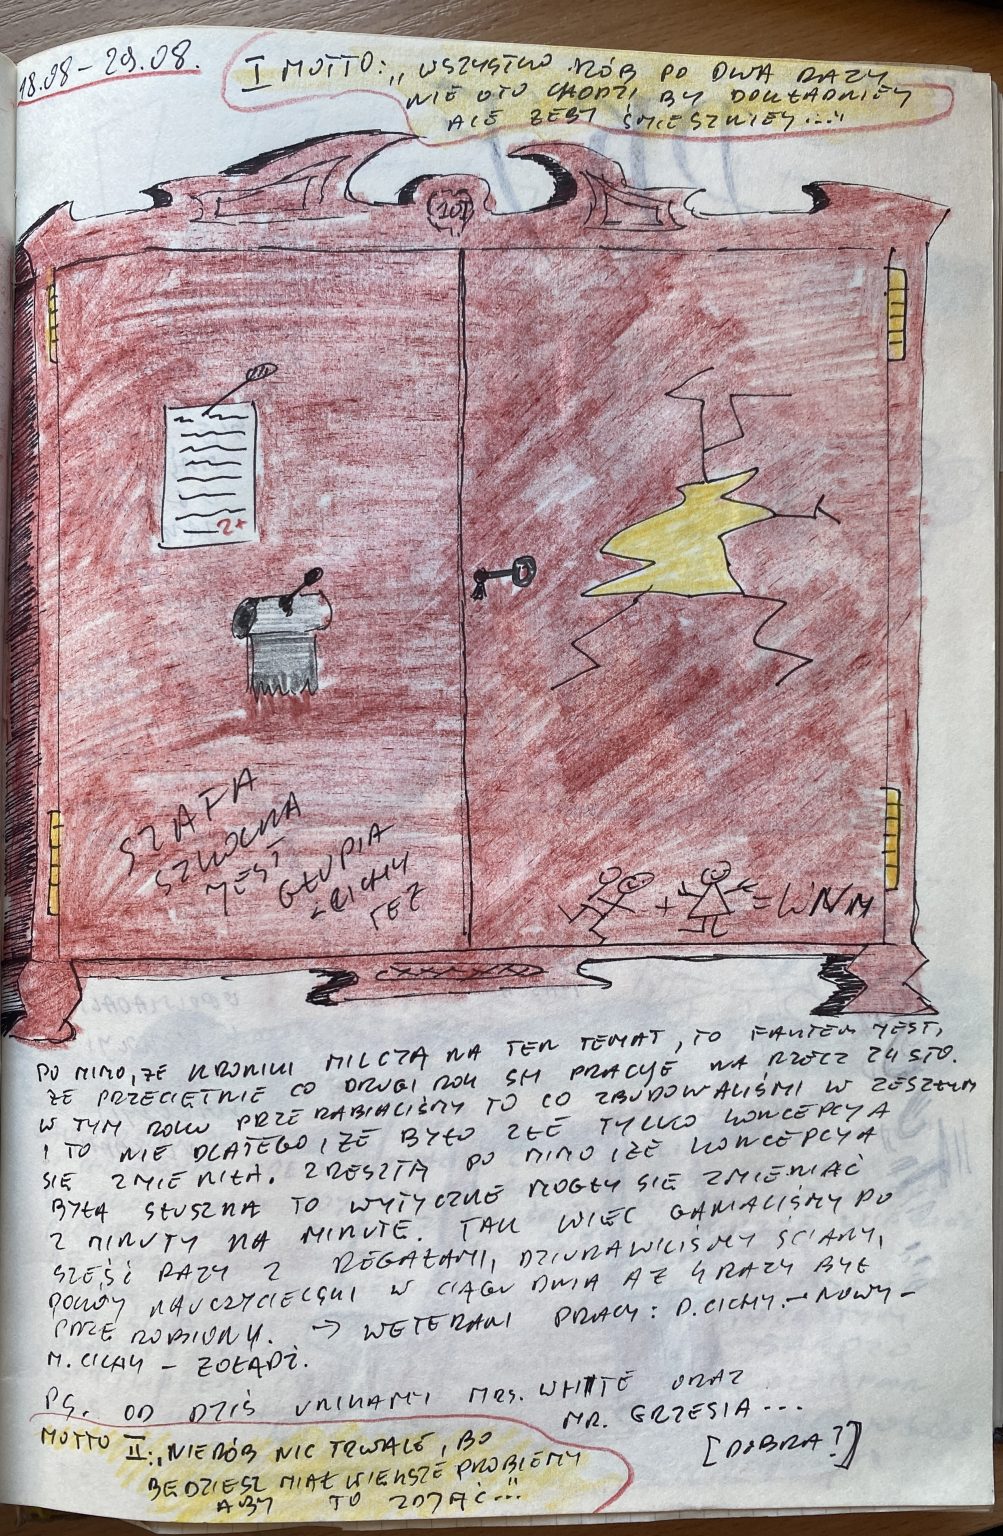 18.08 - 29.08.
I MOTTO: „WSZYSTKO RÓB PO DWA RAZY
NIE OTO CHODZI BY DOKŁADNIEY
ALE ŻEBY ŚMIESZNIEY..."
101
2+
SZAFA
SZKOLNA
YEST
GŁUPIA
CICHY
TEŻ
+ = WNM
PO MIMO, ŻE KRONIKI MILCZĄ NA TEN TEMAT, TO FAKTEM YEST,
ŻE PRZECIĘTNIE CO DRUGI ROK SH PRACYE NA RZECZ ZHSTO.
W TYM ROKU PRZERABIALIŚMY TO CO ZBUDOWALIŚMI W ZESZŁYM
I TO NIE DLATEGO, ŻE BYŁO ZŁE TYLKO KONCEPCYA
SIĘ ZMIENIŁA. ZRESZTĄ PO MIMO, ŻE KONCEPCYA
BYŁA SŁUSZNA TO WYTYCZNE MOGŁY SIĘ ZMIENIAĆ
Z MINUTY NA MINUTĘ. TAK WIĘC GANIALIŚMY PO
SZEŚĆ RAZY Z REGAŁAMI, DZIURAWILIŚMY ŚCIANY,
POKÓY NAUCZYCIELSKI W CIĄGU DNIA AŻ 4 RAZY BYŁ
PRZEROBIONY. → WETERANI PRACY: D.CICHY. → NOWY -
M. CICHY - ŻOŁĄDŹ.
PS. OD DZIŚ UNIKAMY MRS. WHITE ORAZ
MR. GRZESIA...
[DOBRA?]
MOTTO II: „NIERÓB NIC TRWALE, BO
BĘDZIESZ MIAŁ WIĘKSZE PROBLEMY
ABY TO ZDJĄĆ..."